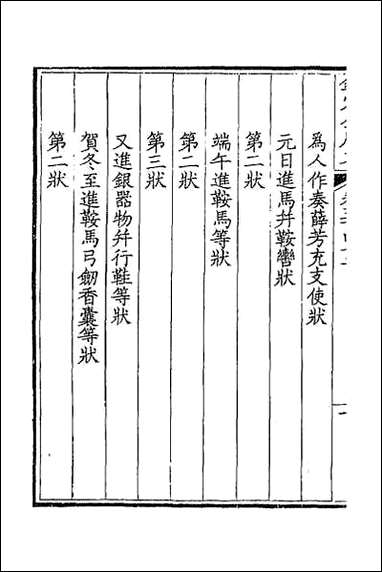 為人作奏薛芳充支使狀
元日進馬并鞍轡狀
第二狀
端午進鞍馬等狀
第二狀
第三狀
又進銀器物并行鞋等狀
賀冬至進鞍馬弓劒香囊等狀
第二狀